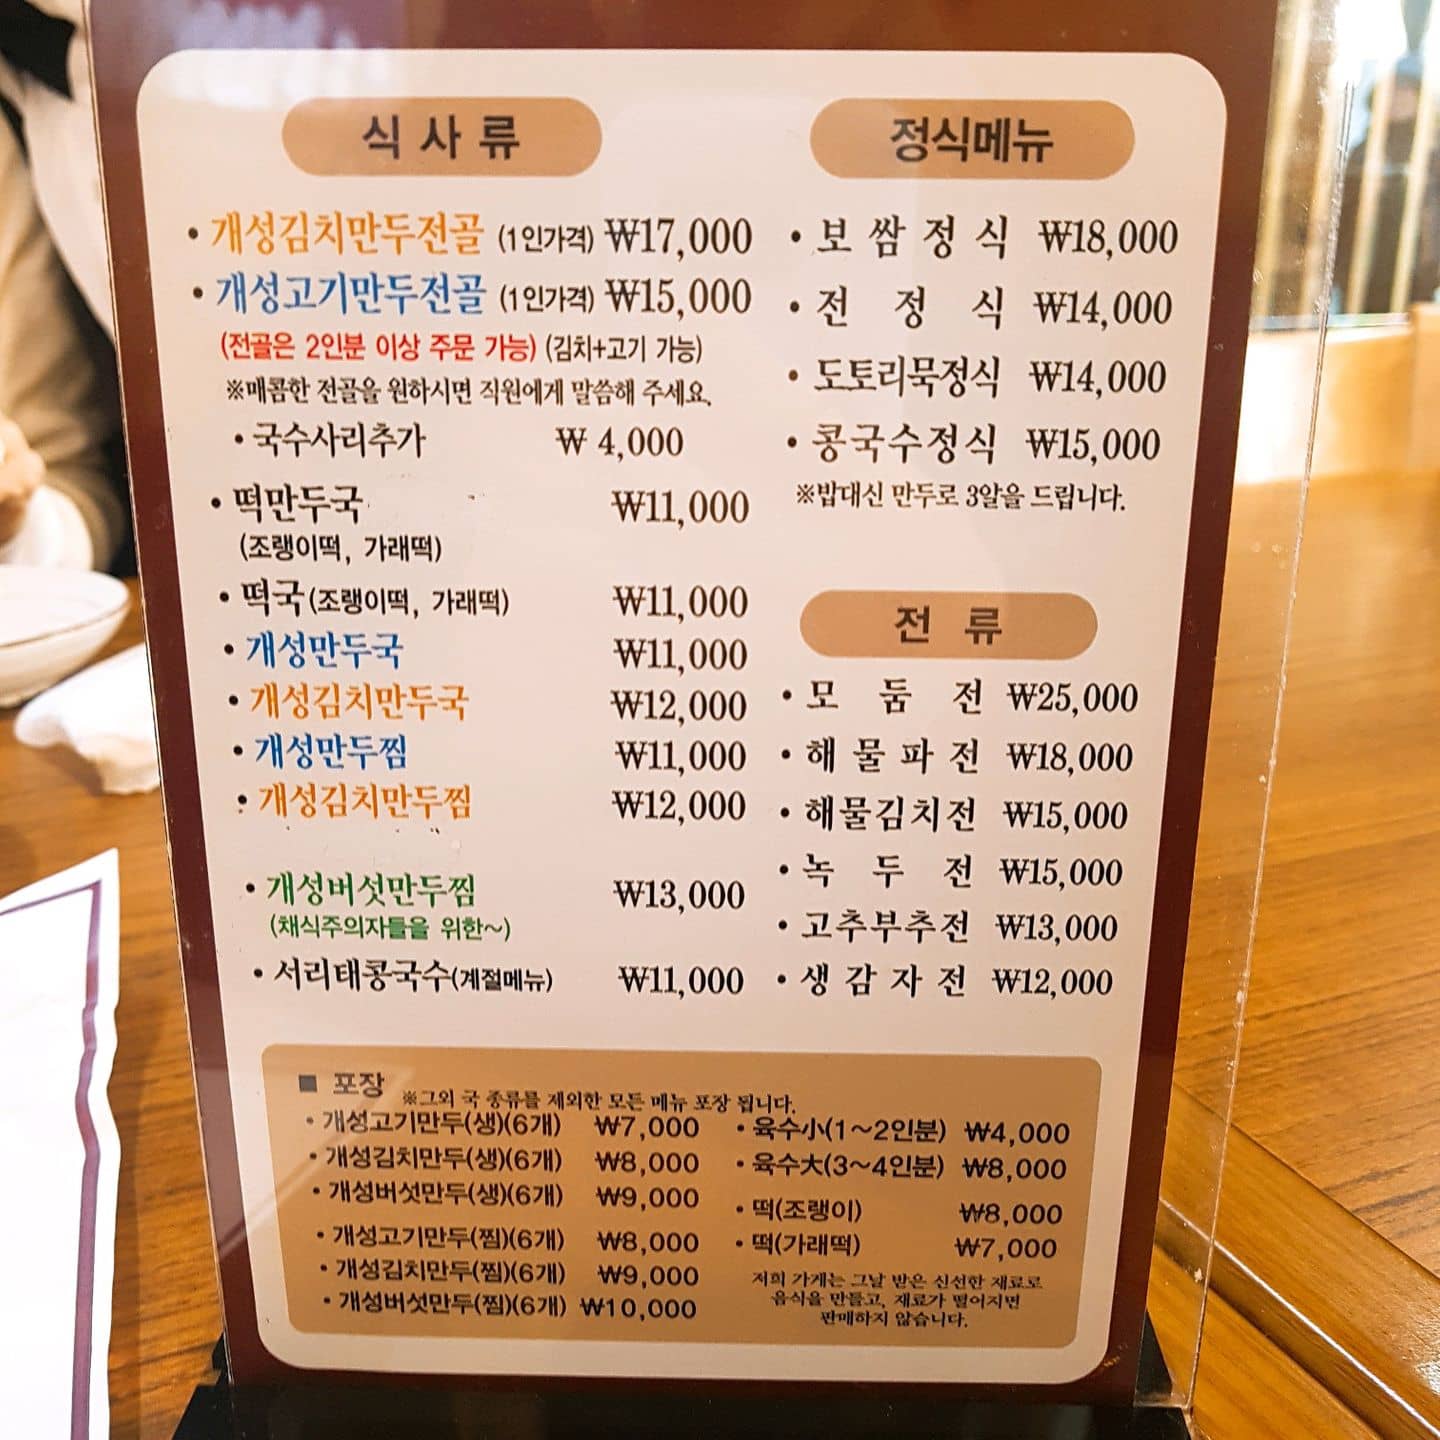 식사류
• 개성김치만두전골 (1인가격) ₩17,000
• 개성고기만두전골 (1인가격) ₩15,000
(전골은 2인분 이상 주문 가능) (김치+고기 가능)
※매콤한 전골을 원하시면 직원에게 말씀해 주세요.
• 국수사리추가 ₩ 4,000
• 떡만두국 ₩11,000
(조랭이떡, 가래떡)
• 떡국(조랭이떡, 가래떡) ₩11,000
• 개성만두국 ₩11,000
• 개성김치만두국 ₩12,000
• 개성만두찜 ₩11,000
• 개성김치만두찜 ₩12,000
• 개성버섯만두찜 ₩13,000
(채식주의자들을 위한~)
• 서리태콩국수(계절메뉴) ₩11,000
정식메뉴
• 보쌈정식 ₩18,000
• 전정식 ₩14,000
• 도토리묵정식 ₩14,000
• 콩국수정식 ₩15,000
※밥대신 만두로 3알을 드립니다.
전류
• 모둠전 ₩25,000
• 해물파전 ₩18,000
• 해물김치전 ₩15,000
• 녹두전 ₩15,000
• 고추부추전 ₩13,000
• 생감자전 ₩12,000
■ 포장 ※그외 국 종류를 제외한 모든 메뉴 포장 됩니다.
• 개성고기만두(생)(6개) ₩7,000
• 개성김치만두(생)(6개) ₩8,000
• 개성버섯만두(생)(6개) ₩9,000
• 개성고기만두(찜)(6개) ₩8,000
• 개성김치만두(찜)(6개) ₩9,000
• 개성버섯만두(찜)(6개) ₩10,000
• 육수小(1~2인분) ₩4,000
• 육수大(3~4인분) ₩8,000
• 떡(조랭이) ₩8,000
• 떡(가래떡) ₩7,000
저희 가게는 그날 받은 신선한 재료로
음식을 만들고, 재료가 떨어지면
판매하지 않습니다.